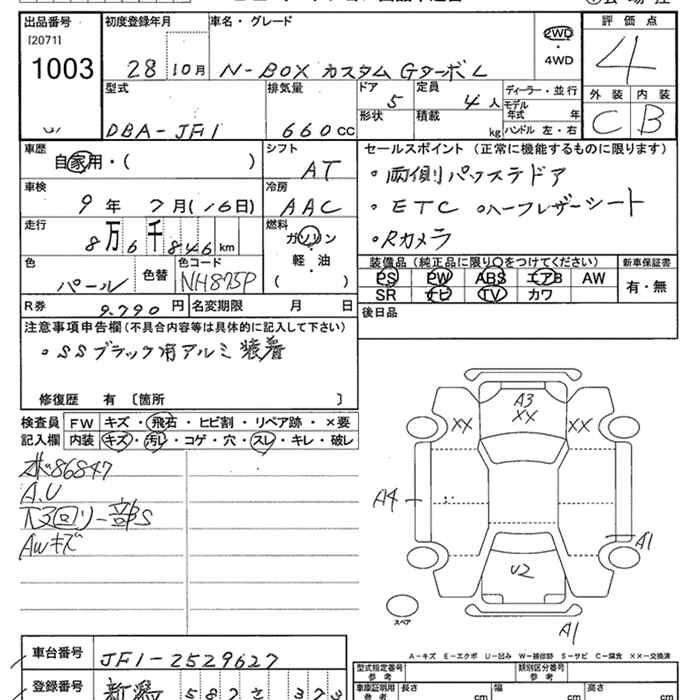 出品番号
[2071]
1003
初度登録年月
28 10月
車名・グレード
N-BOX カスタム GターボL
2WD
・
4WD
評価点
4
外装 内装
C B
型式
DBA-JF1
排気量
660cc
ドア 5
形状
定員 4人
積載 kg
ディーラー・並行
モデル
年式 年
ハンドル 左・右
車歴
自家用・( )
シフト
AT
車検
9年 7月(16日)
冷房
AAC
走行
8万6千846km
燃料
ガソリン
軽・油
( )
色
パール
色替
色コード
NH875P
セールスポイント(正常に機能するものに限ります)
・両側パワースラドア
・ETC ・ハーフレザーシート
・Rカメラ
装備品(純正品に限り○をつけてください)
PS PW ABS エアB AW
SR ナビ TV カワ
新車保証書
有・無
後日品
R券 9,790円
名変期限 月 日
注意事項申告欄(不具合内容等は具体的に記入して下さい)
・SSブラック用アルミ装着
修復歴 有〔箇所 〕
検査員
記入欄
FW キズ・飛石・ヒビ割・リペア跡・×要
内装 キズ・汚レ・コゲ・穴・スレ・キレ・破レ
86847
A.U
下回り一部S
AWキズ
A3
XX
XX
XX
A4
A1
U2
A1
スペア
A-キズ E-エクボ U-凹み W-補修跡 S-サビ C-腐食 XX-交換済
車台番号
JF1-2529627
登録番号
新潟
型式指定番号
参考
類別区分番号
参考
車庫証明用
参考
長さ cm
幅 cm
高さ cm